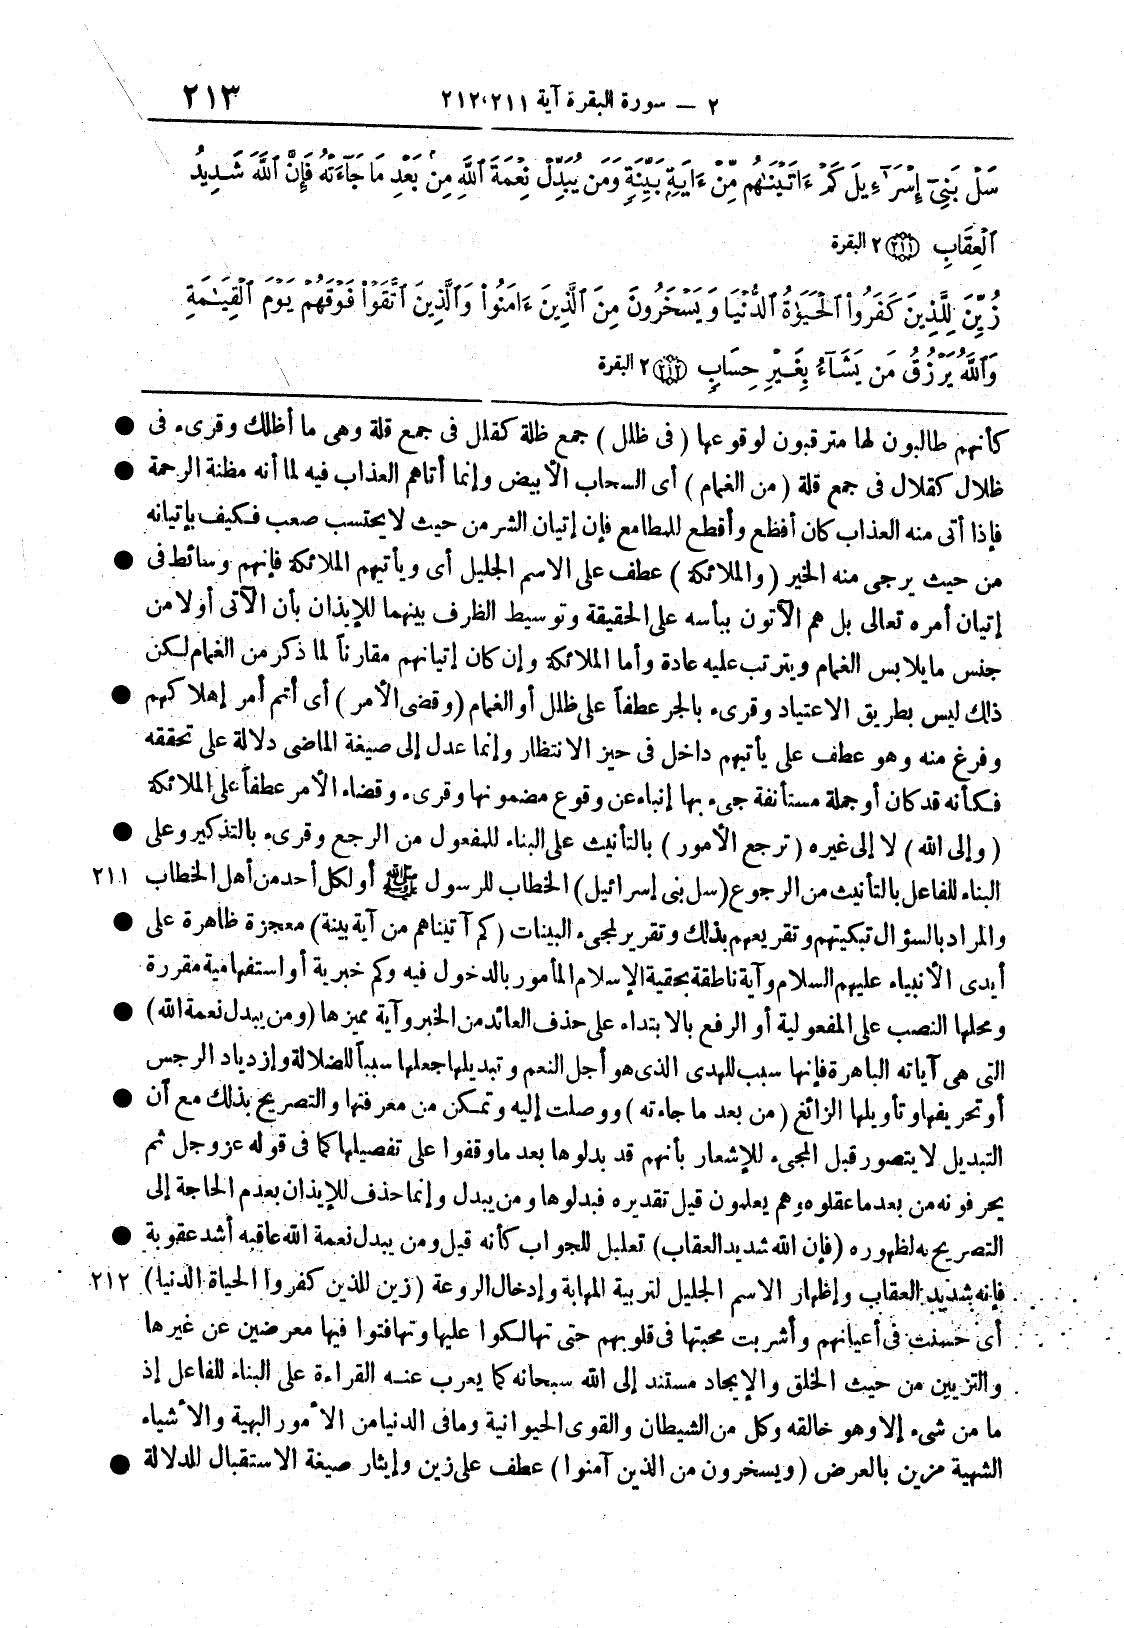 ٢ — سورة البقرة آية ٢١١،٢١٢
٢١٣
سَلْ بَنِىٓ إِسْرَٰٓءِيلَ كَمْ ءَاتَيْنَٰهُم مِّنْ ءَايَةٍۭ بَيِّنَةٍ وَمَن يُبَدِّلْ نِعْمَةَ ٱللَّهِ مِنۢ بَعْدِ مَا جَآءَتْهُ فَإِنَّ ٱللَّهَ شَدِيدُ
ٱلْعِقَابِ ﴿٢١١﴾ ٢ البقرة
زُيِّنَ لِلَّذِينَ كَفَرُوا۟ ٱلْحَيَوٰةُ ٱلدُّنْيَا وَيَسْخَرُونَ مِنَ ٱلَّذِينَ ءَامَنُوا۟ وَٱلَّذِينَ ٱتَّقَوْا۟ فَوْقَهُمْ يَوْمَ ٱلْقِيَٰمَةِ
وَٱللَّهُ يَرْزُقُ مَن يَشَآءُ بِغَيْرِ حِسَابٍ ﴿٢١٢﴾ ٢ البقرة
كأنهم طالبون لها مترقبون لوقوعها (فى ظلل) جمع ظلة كقلل فى جمع قلة وهى ما أظلك وقرىء فى ●
ظلال كقلال فى جمع قلة (من الغمام) أى السحاب الأبيض وإنما أتاهم العذاب فيه لما أنه مظنة الرحمة ●
فإذا أتى منه العذاب كان أفظع وأقطع للمطامع فإن إتيان الشر من حيث لا يحتسب صعب فكيف بإتيانه
من حيث يرجى منه الخير (والملائكة) عطف على الاسم الجليل أى ويأتيهم الملائكة فإنهم وسائط فى ●
إتيان أمره تعالى بل هم الآتون ببأسه على الحقيقة وتوسيط الظرف بينهما للإيذان بأن الآتى أولا من
جنس ما يلابس الغمام ويترتب عليه عادة وأما الملائكة وإن كان إتيانهم مقارناً لما ذكر من الغمام لكن
ذلك ليس بطريق الاعتياد وقرىء بالجر عطفاً على ظلل أو الغمام (وقضى الأمر) أى أتم أمر إهلاكهم ●
وفرغ منه وهو عطف على يأتيهم داخل فى حيز الانتظار وإنما عدل إلى صيغة الماضى دلالة على تحققه
فكأنه قد كان أو جملة مستأنفة جىء بها إنباء عن وقوع مضمونها وقرىء وقضاء الأمر عطفاً على الملائكة
(وإلى الله) لا إلى غيره (ترجع الأمور) بالتأنيث على البناء للمفعول من الرجع وقرىء بالتذكير وعلى ●
البناء للفاعل بالتأنيث من الرجوع (سل بنى إسرائيل) الخطاب للرسول ﷺ أو لكل أحد من أهل الخطاب ٢١١
والمراد بالسؤال تبكيتهم وتقريعهم بذلك وتقرير لمجىء البينات (كم آتيناهم من آية بينة) معجزة ظاهرة على ●
أيدى الأنبياء عليهم السلام وآية ناطقة بحقية الإسلام المأمور بالدخول فيه وكم خبرية أو استفهامية مقررة
ومحلها النصب على المفعولية أو الرفع بالابتداء على حذف العائد من الخبر وآية مميزها (ومن يبدل نعمة الله) ●
التى هى آياته الباهرة فإنها سبب للهدى الذى هو أجل النعم وتبديلها جعلها سبباً للضلالة وازدياد الرجس
أو تحريفها وتأويلها الزائغ (من بعد ما جاءته) ووصلت إليه وتمكن من معرفتها والتصريح بذلك مع أن ●
التبديل لا يتصور قبل المجىء للإشعار بأنهم قد بدلوها بعد ما وقفوا على تفصيلها كما فى قوله عز وجل ثم
يحرفونه من بعد ما عقلوه وهم يعلمون قيل تقديره فبدلوها ومن يبدل وإنما حذف للإيذان بعدم الحاجة إلى
التصريح به لظهوره (فإن الله شديد العقاب) تعليل للجواب كأنه قيل ومن يبدل نعمة الله عاقبه أشد عقوبة ●
فإنه شديد العقاب وإظهار الاسم الجليل لتربية المهابة وإدخال الروعة (زين للذين كفروا الحياة الدنيا) ٢١٢
أى حسنت فى أعيانهم وأشربت محبتها فى قلوبهم حتى تهالكوا عليها وتهافتوا فيها معرضين عن غيرها
والتزيين من حيث الخلق والإيجاد مستند إلى الله سبحانه كما يعرب عنه القراءة على البناء للفاعل إذ
ما من شىء إلا وهو خالقه وكل من الشيطان والقوى الحيوانية وما فى الدنيا من الأمور البهية والأشياء
الشهية مزين بالعرض (ويسخرون من الذين آمنوا) عطف على زين وإيثار صيغة الاستقبال للدلالة ●